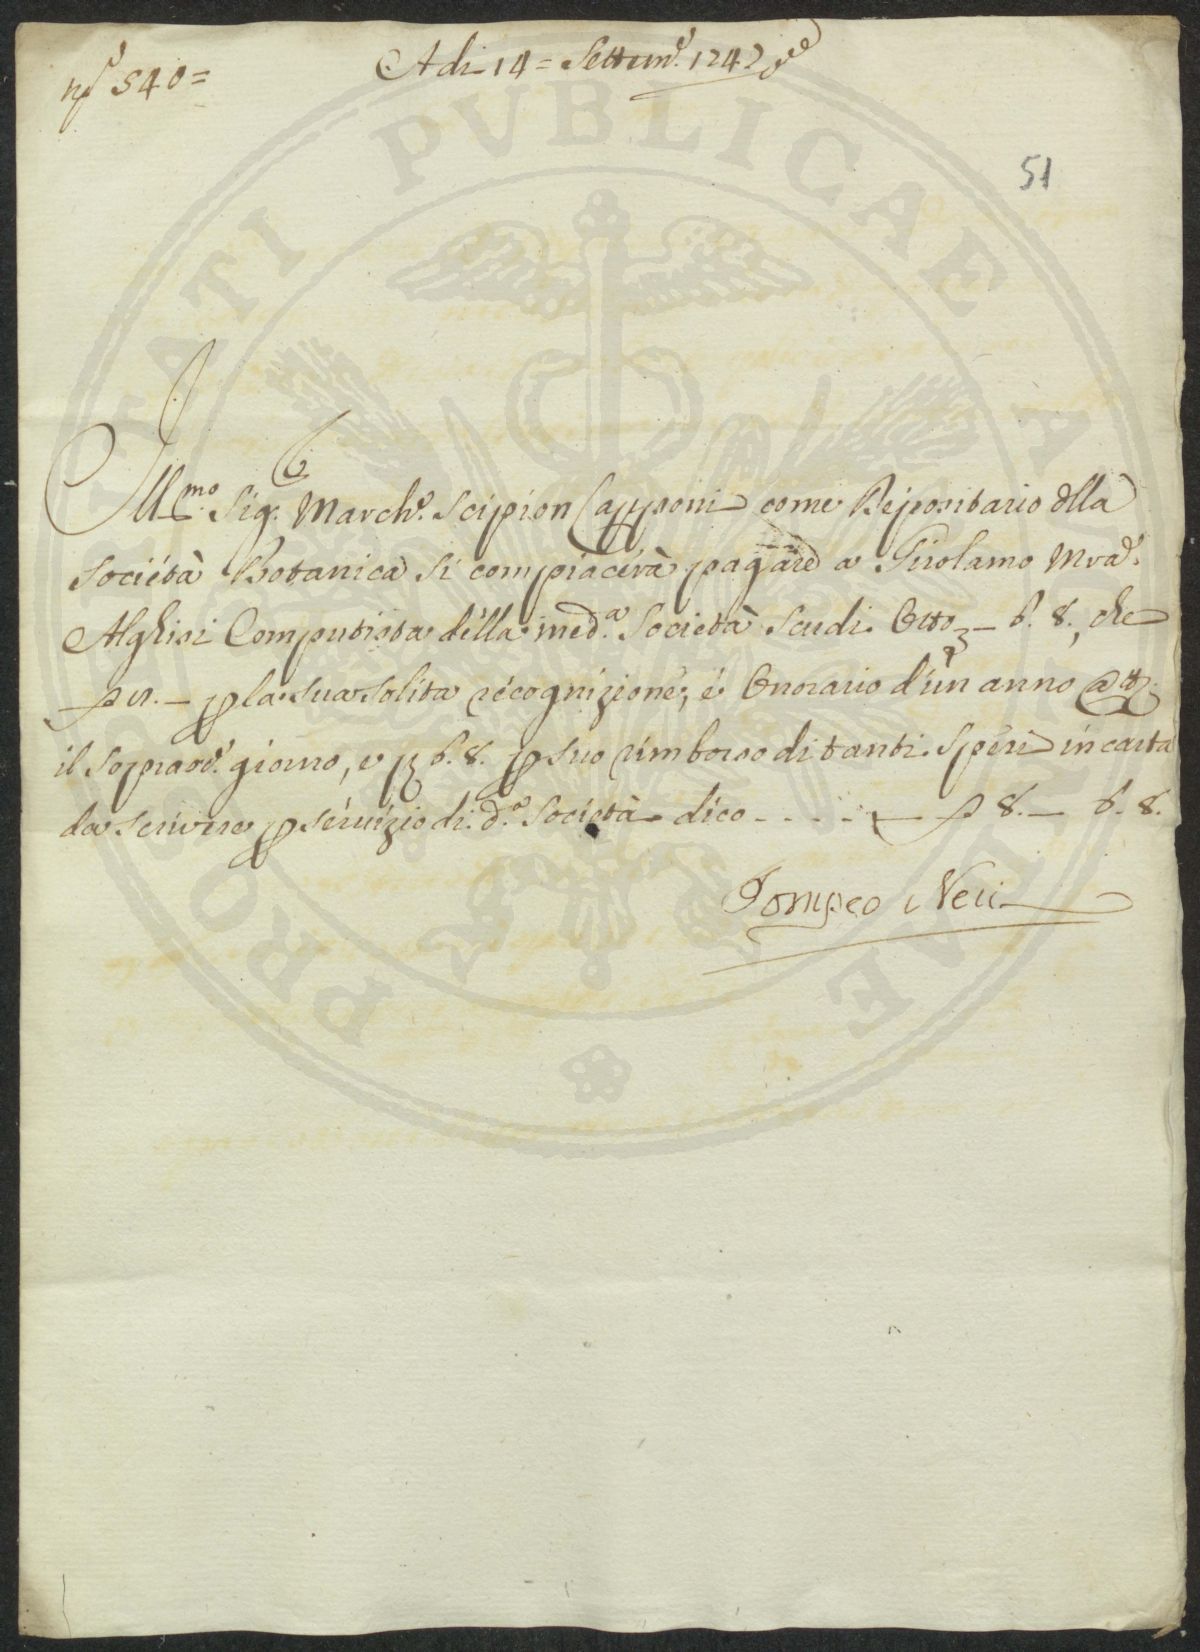 nº 540=
Adi 14= Settem.e 1742
51
Ill.mo Sig.r March.e Scipion Capponi come Depositario della
Società Botanica si compiacerà pagare a Girolamo M.a
Alghisi Computista della med.a Società Scudi Otto — 6. 8., che
— p la sua solita recognizione, é Onorario d'un anno
il soprad.o giorno, e 6. 8. p suo rimborso di tanti spesi in carta
da scrivere p servizio di d.a Società dico - - - - — 8. — 6. 8.
Pompeo Neri
PROSPERITATI PUBLICAE AUGENDAE